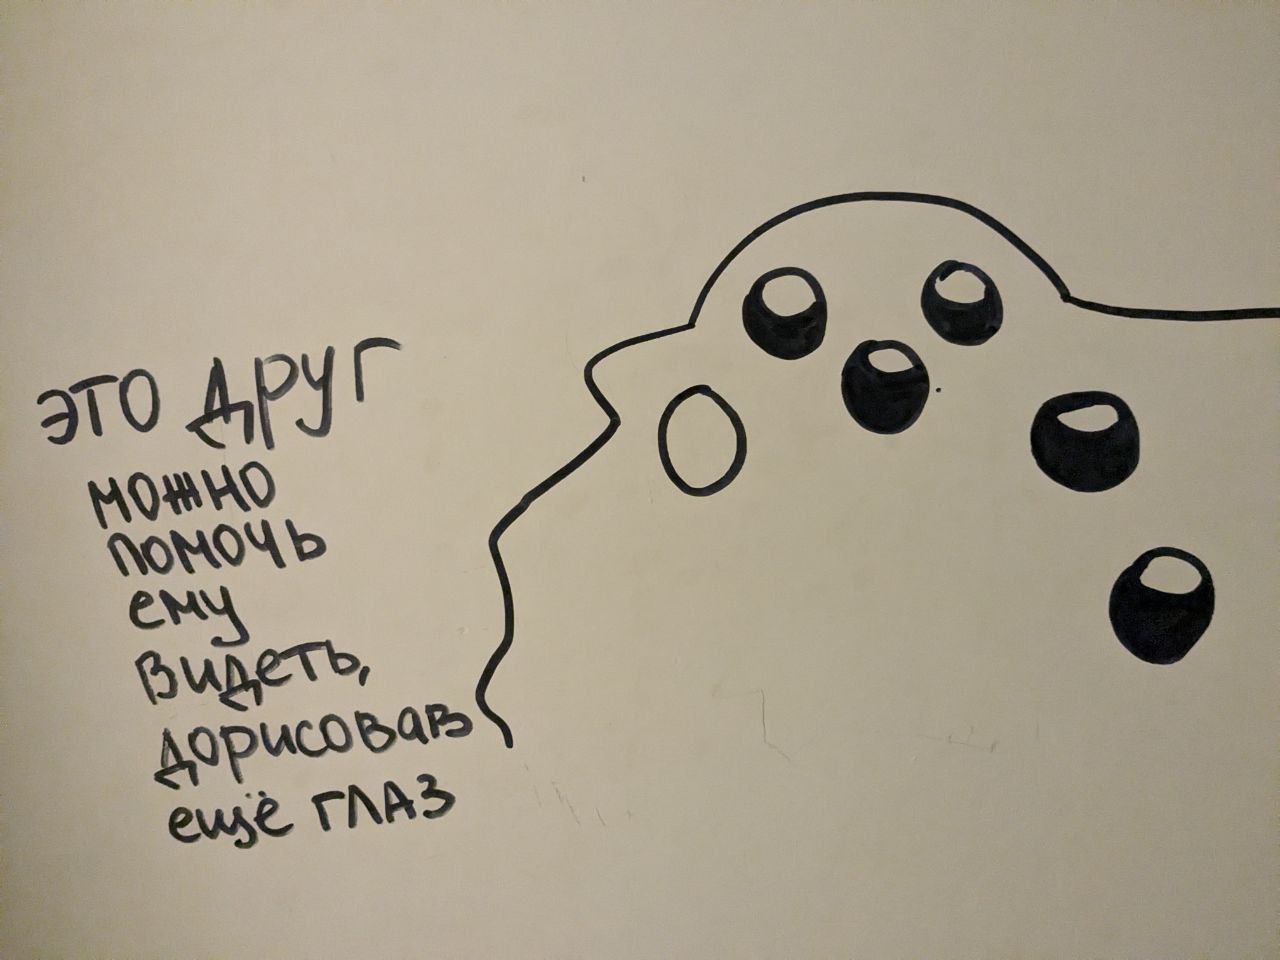 это друг
можно
помочь
ему
видеть,
дорисовав
ещё глаз